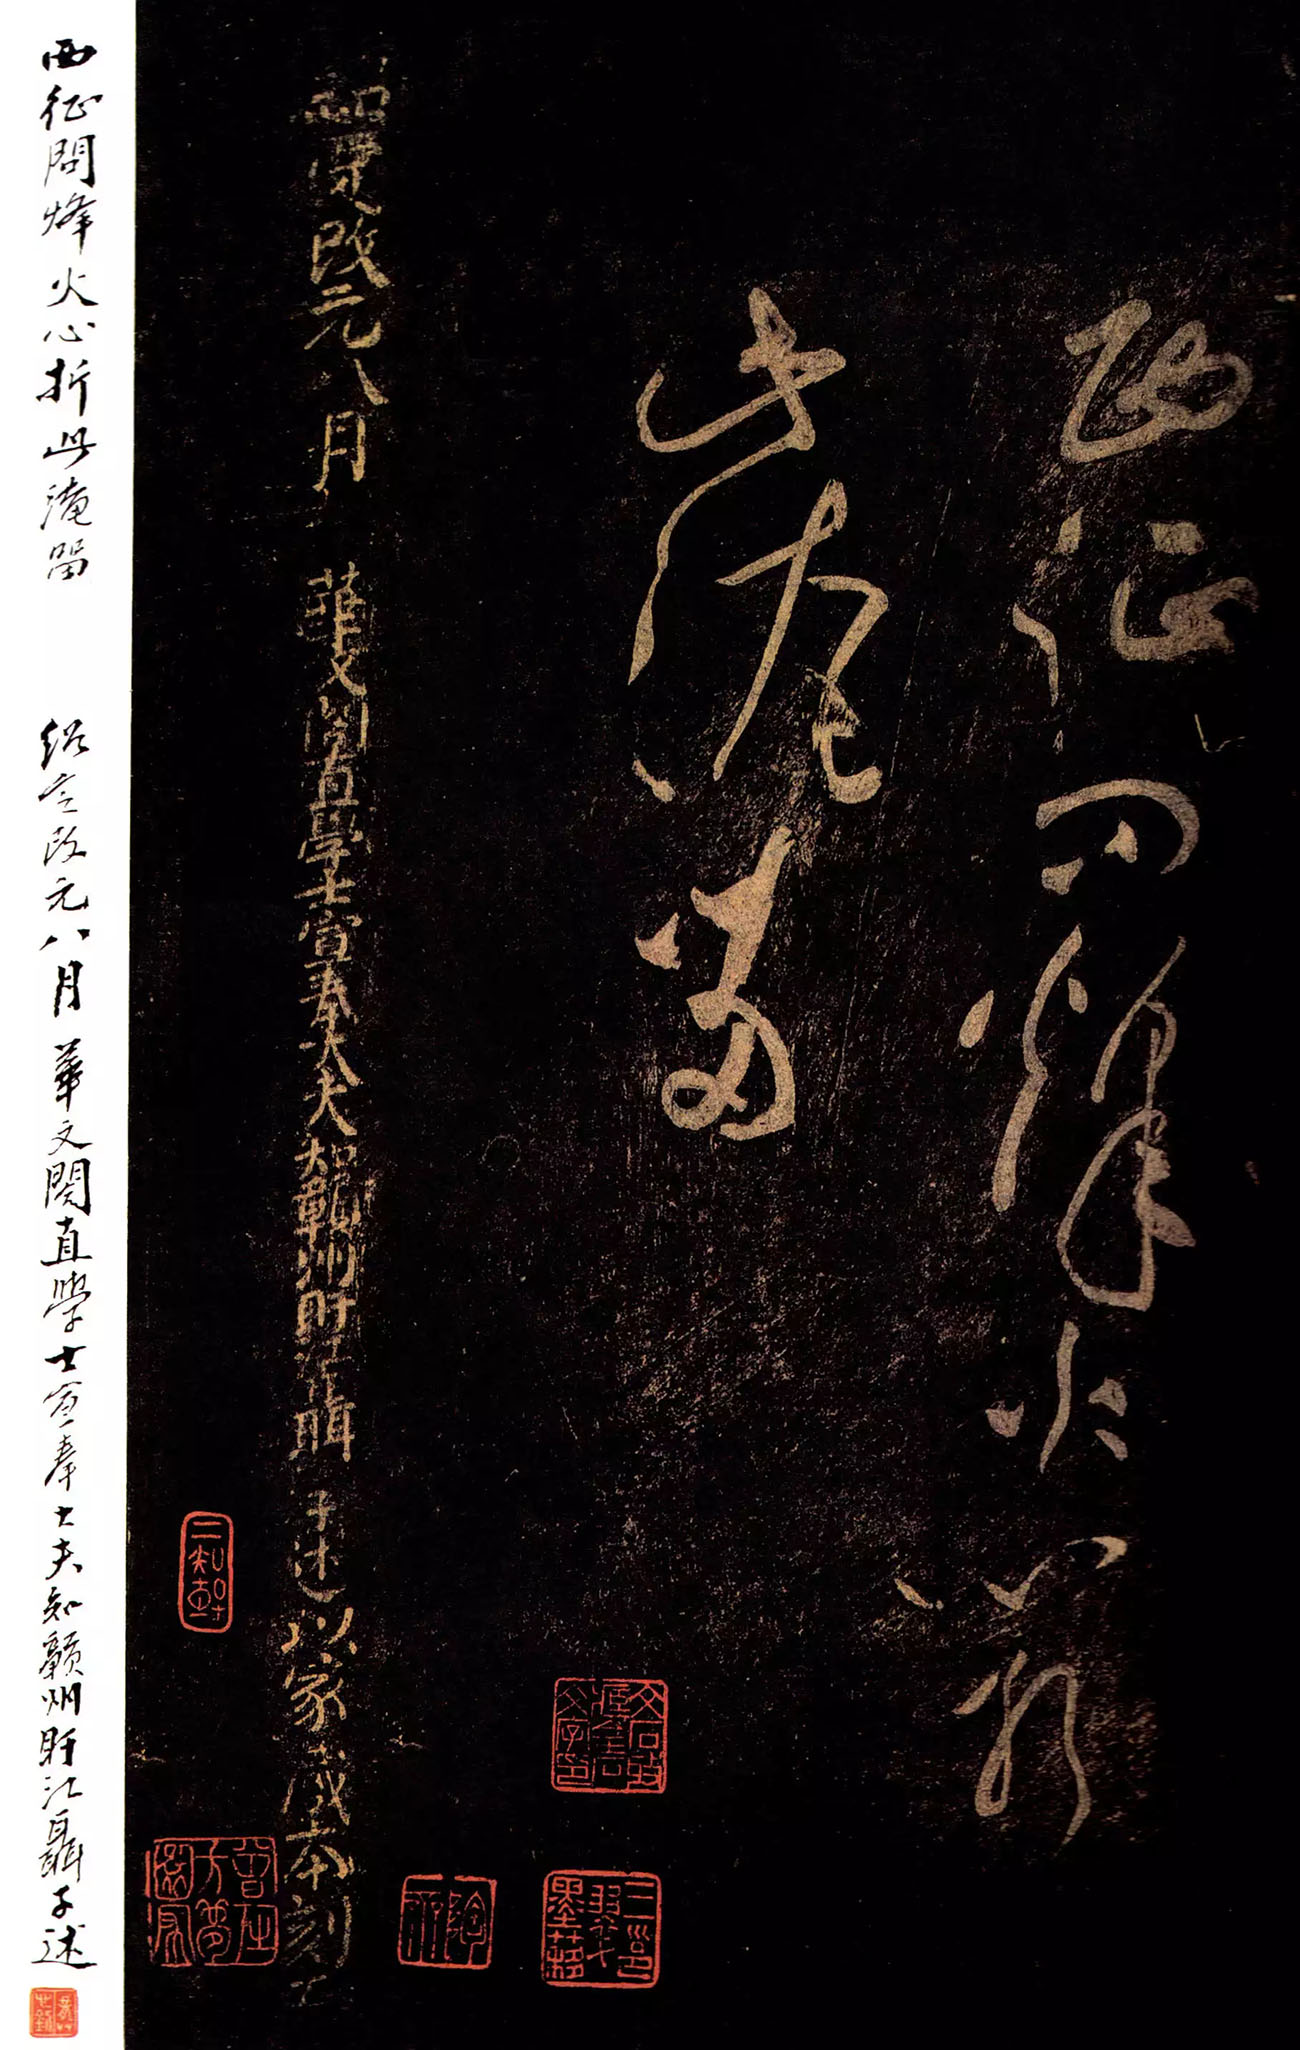 西征问烽火心折
此淹留
紹定改元八月 華文閣直學士宣奉大夫知贛州盱江聶子述以家藏本刻石
西征問烽火心折此淹留 绍定改元八月 華文閣直學士宣奉大夫知贛州盱江聶子述
二知軒